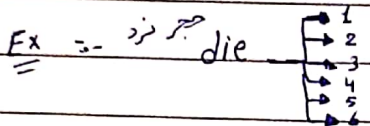 Ex :- حجر نرد die
1
2
3
4
5
6